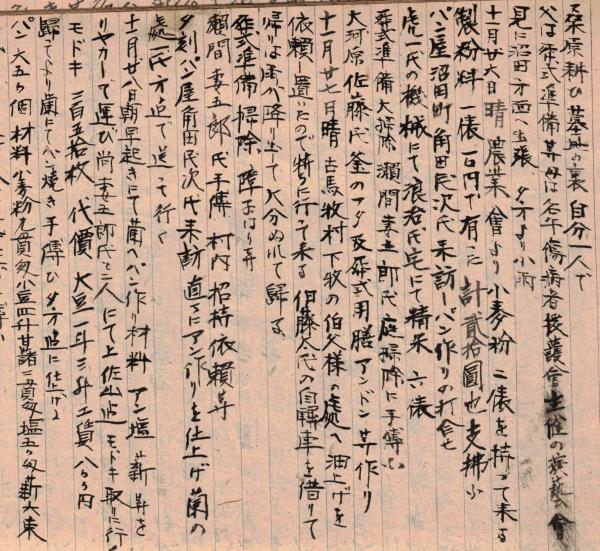 桑原耕ひ墓地の裏自分一人で
父は葬式準備等母は名午傷病者援護會主催の演藝會
見に沼田方面へ出張　夕方より小雨
十一月廿六日　晴　農業會より小麦粉二俵を持って来る
製粉料一俵一〇円で有った　計貳拾圓也支拂ふ
パン屋沼田町角田氏次氏来訪しパン作りの打合せ
虎一氏の機械にて浪治氏宅にて精米六俵
葬式準備大掃除瀬間妻五郎氏庭掃除に手傳ふ
大河原佐藤氏釜のフタ及葬式用膳アンドン等作り
十一月廿七日晴　古馬牧村下牧の伯父様の處へ油上げを
依頼し置いたので持ちに行て来る　伊藤太氏の自轉車を借りて
帰りは雨が降り出して大分ぬれて帰る
葬式準備掃除、障子はり等
瀬間妻五郎氏手傳　村内招待依頼等
夕刻パン屋角田氏次氏来訪　直ちにアン作りを仕上げ蘭の
處一氏方迄で送って行く
十一月廿八日朝早起きにて蘭へパン作り材料アン塩薪等を
リヤカーで運び尚妻五郎氏と二人にて上佐山迄モドキ取りに行く
モドキ三百五拾枚　代價大豆一斗三升工賃八〇円
歸てより蘭にてパン焼き手傳ひ夕方迄に仕上る
パン大五〇個材料小麦粉九貫匁小豆四升甘藷二貫匁塩五〇匁薪六束